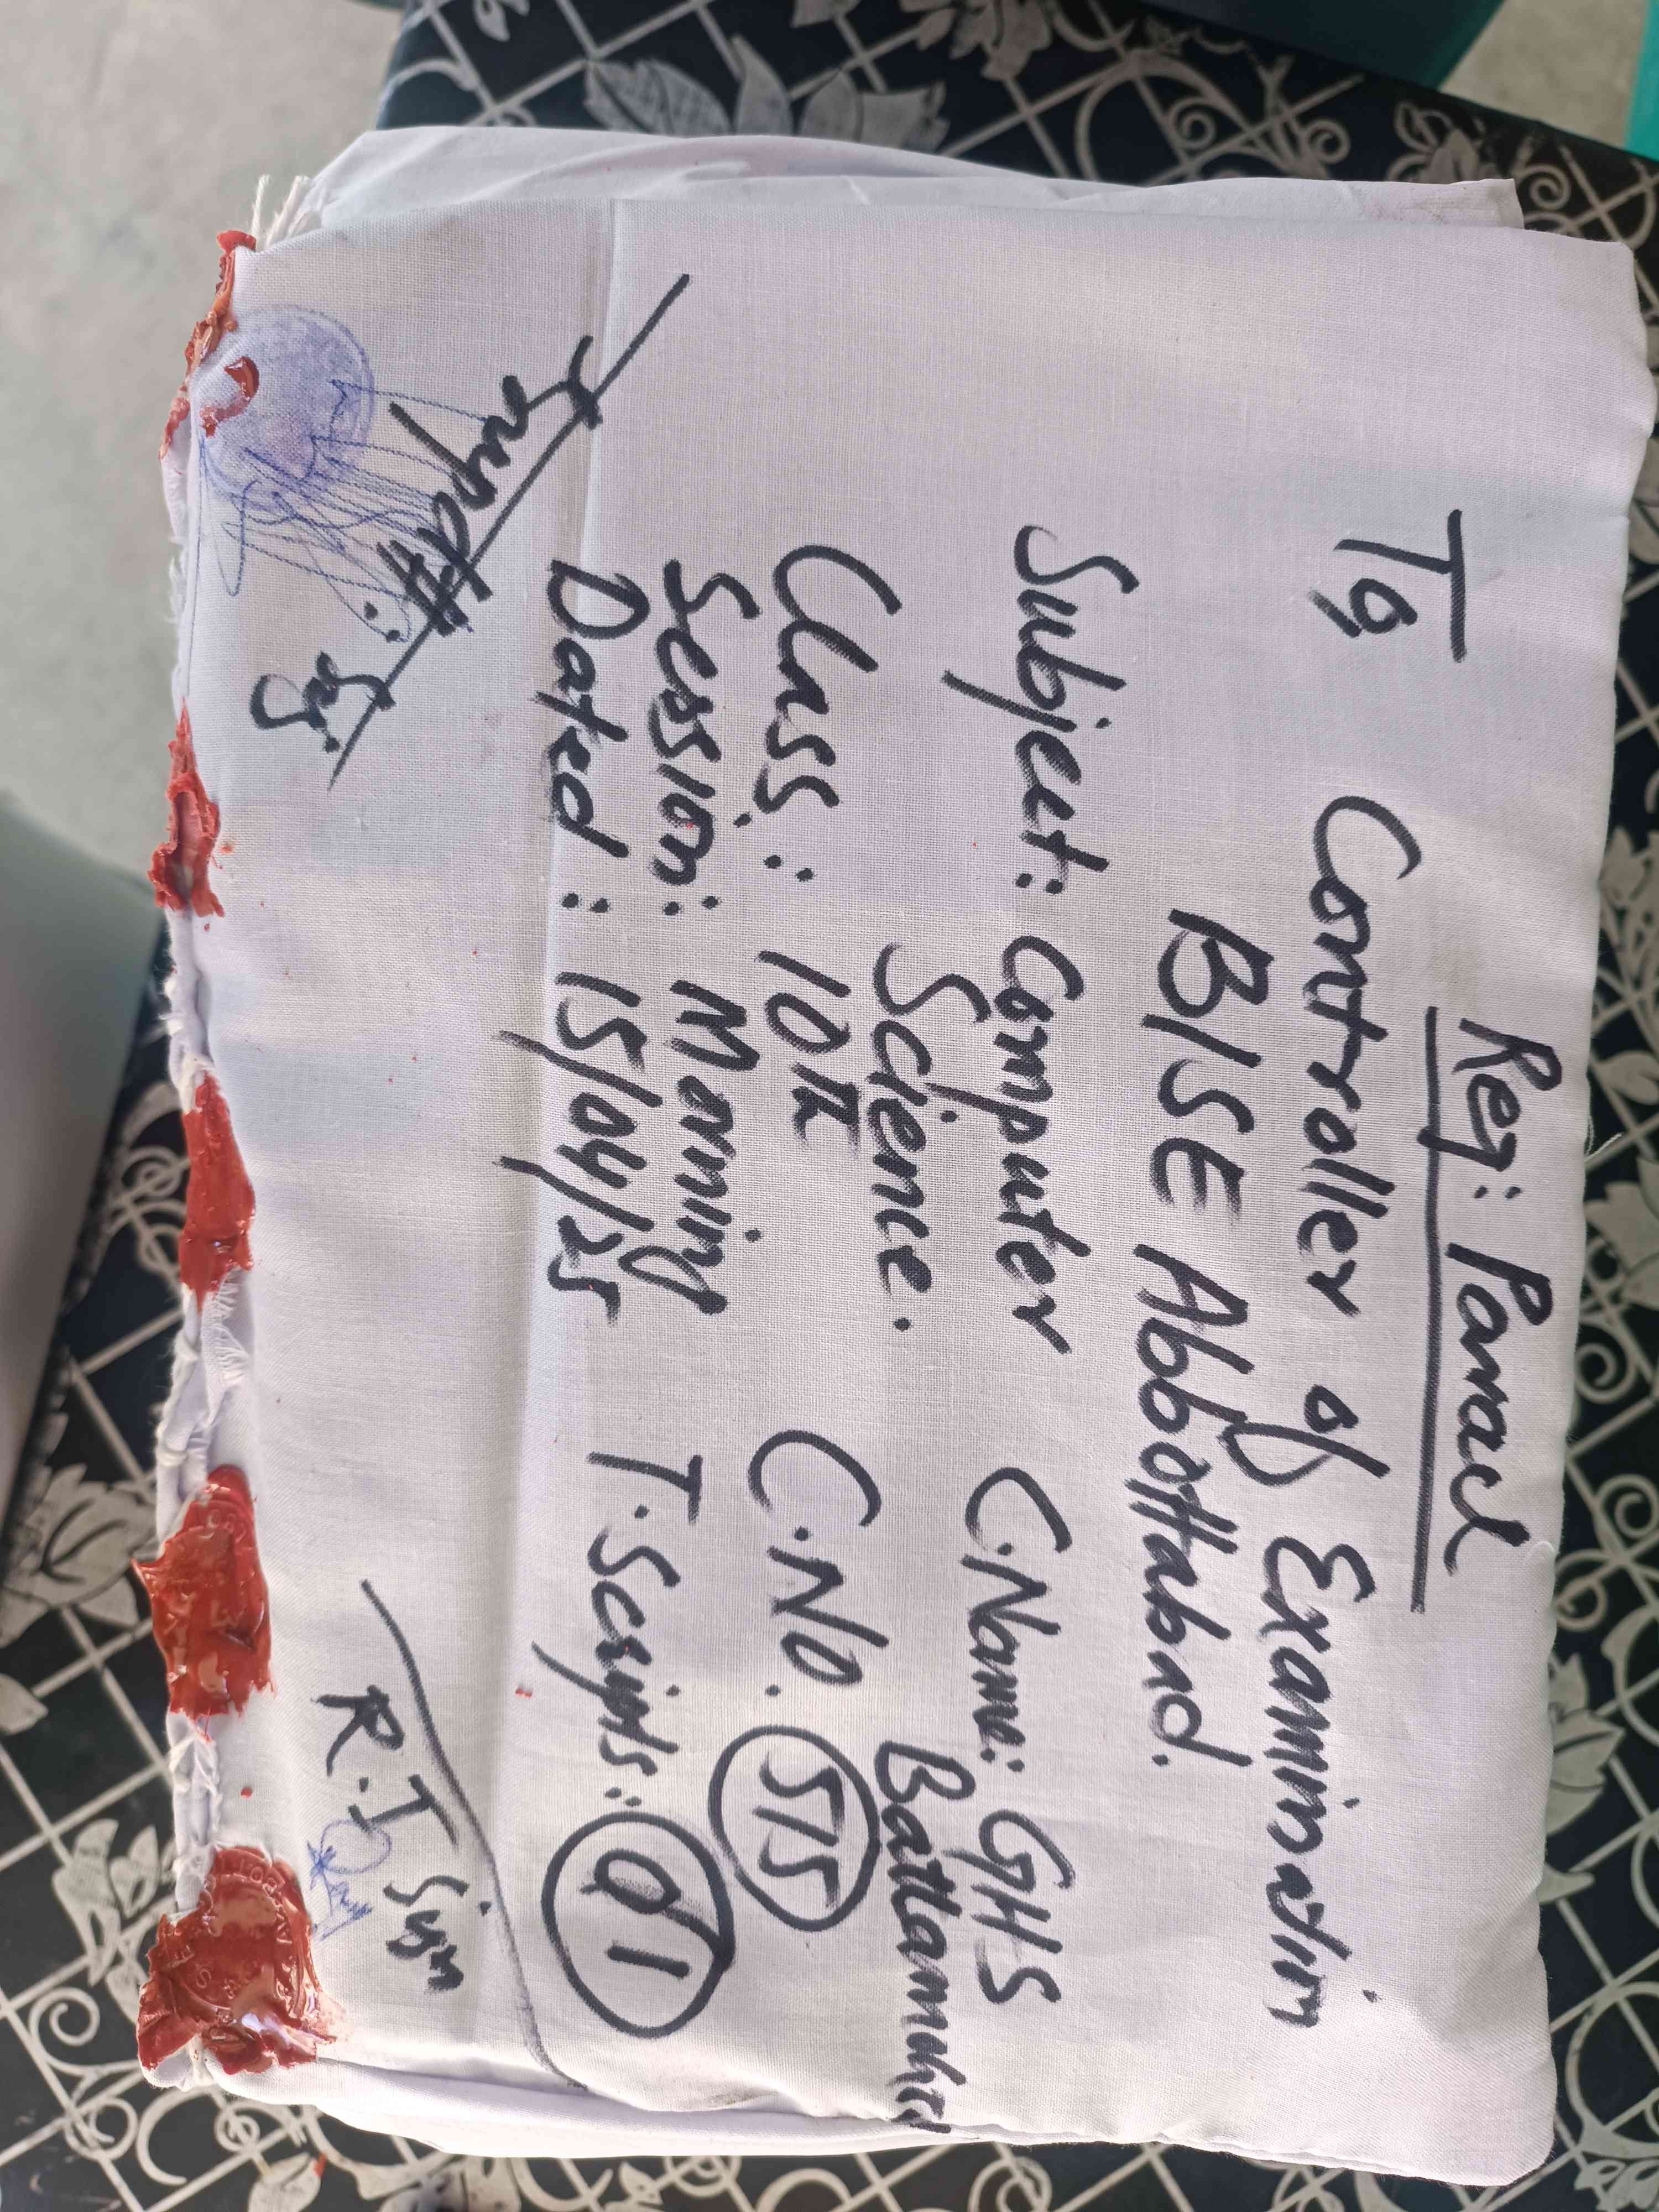 Reg: Parcel
To
Controller of Examination
BISE Abbottabad.
Subject: Computer Science.
C.Name: GHS Battamori
Class: 10th
C.No. 575
Session: Morning
T.Scripts: 01
Dated: 15/04/25
Supdtt: Sig
R.I Sign